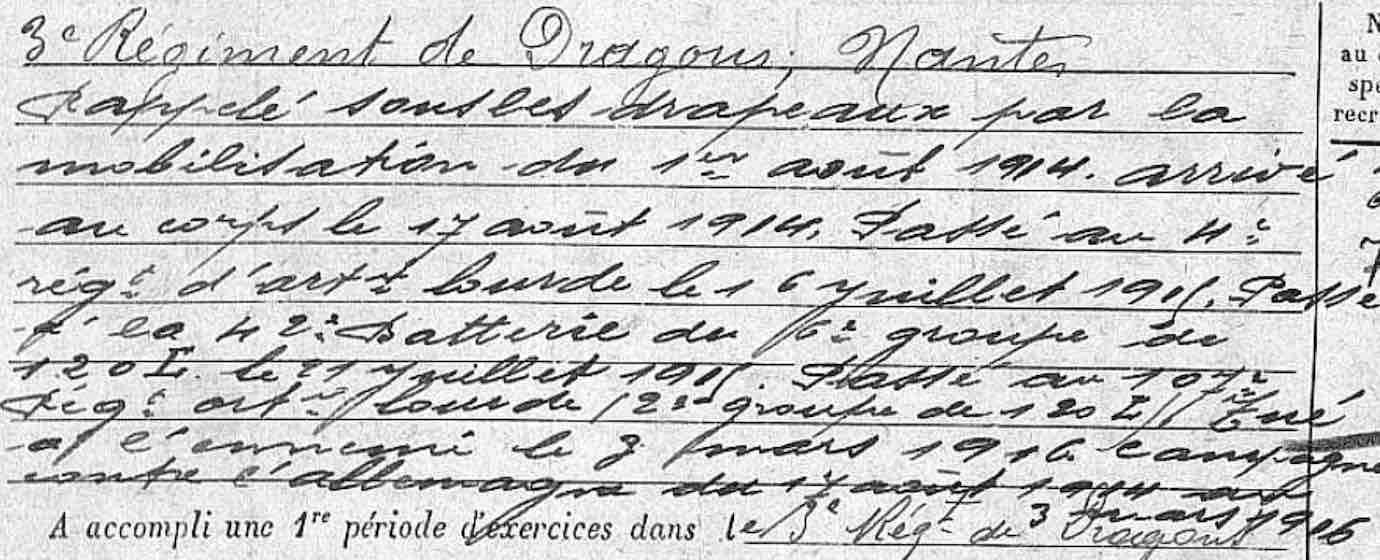 3e Régiment de Dragons, Nantes
Rappelé sous les drapeaux par la
mobilisation du 1er août 1914. arrivé
au corps le 17 août 1914. Passé au 4e
régt d'artie lourde le 16 juillet 1915. Passé
à la 42e Batterie du 6e groupe de
120 L. le 21 juillet 1915. Passé au 107e
Régt artie lourde (2e groupe de 120 L) Tué
à l'ennemi le 3 mars 1916 Campagne
contre l'allemagne du 17 août 1914 au
3 mars 1916
A accompli une 1re période d'exercices dans le 3e Régt de Dragons
N
au
spé
recr